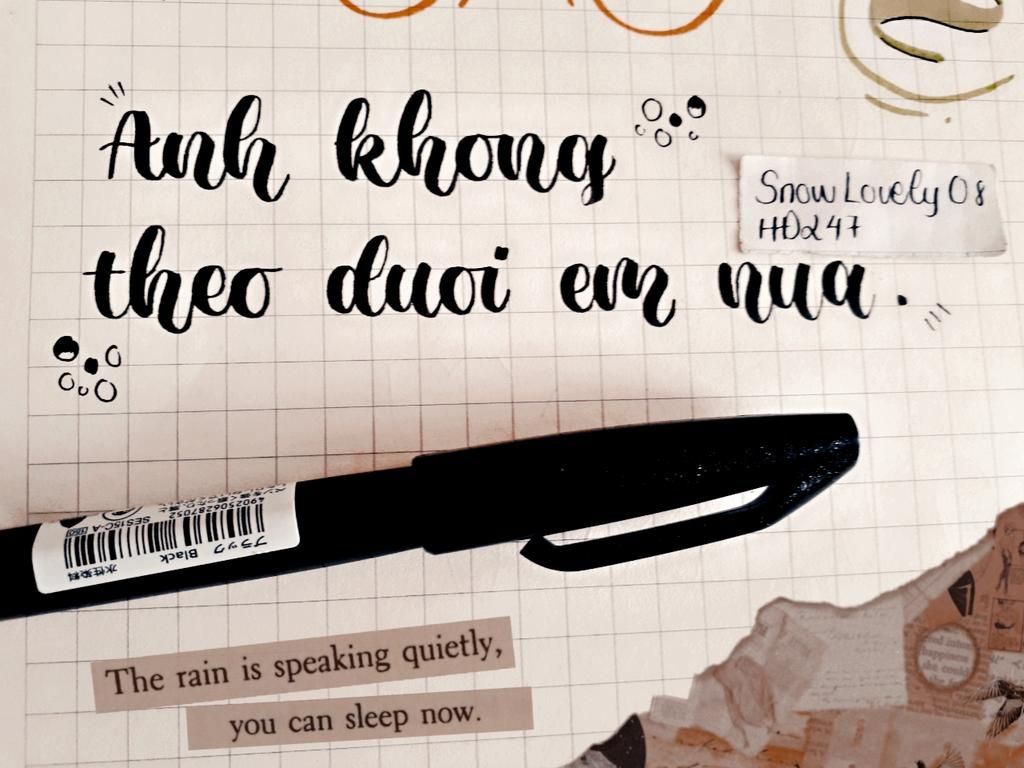 Anh khong
Snow Lovely 08
HD247
theo duoi em nua.
4902506287052
SES15C-A
ブラック
Black
水性染料
The rain is speaking quietly,
you can sleep now.